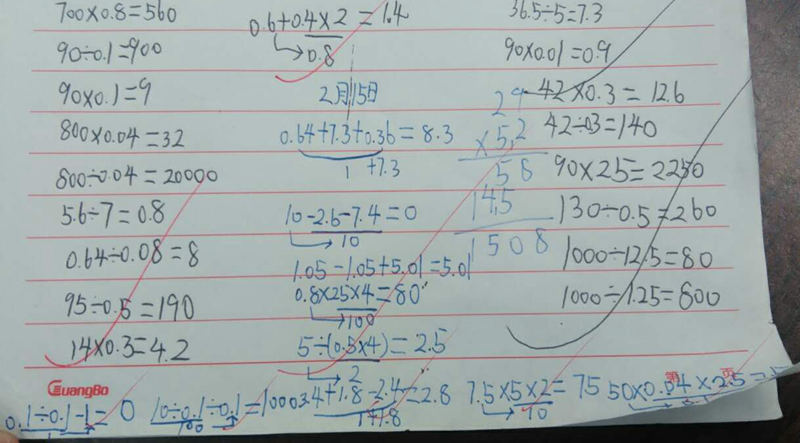 700×0.8=560
90÷0.1=900
90×0.1=9
800×0.04=32
800÷0.04=20000
5.6÷7=0.8
0.64÷0.08=8
95÷0.5=190
14×0.3=4.2
GuangBo
0.6+0.4×2=1.4
0.8
2月15日
0.64+7.3+0.36=8.3
1 +7.3
10-2.6-7.4=0
10
1.05-1.05+5.01=5.01
0.8×25×4=80
100
5÷(0.5×4)=2.5
2
36.5÷5=7.3
90×0.01=0.9
42×0.3=12.6
42÷03=140
90×25=2250
130÷0.5=260
1000÷12.5=80
1000÷1.25=800
29
×5.2
58
145
1508
0.1÷0.1-1=0
10÷0.1÷0.1=1000
100
3.4+1.8-2.4=2.8
1+1.8
7.5×5×2=75
10
50×0.04×2.5=
第 页